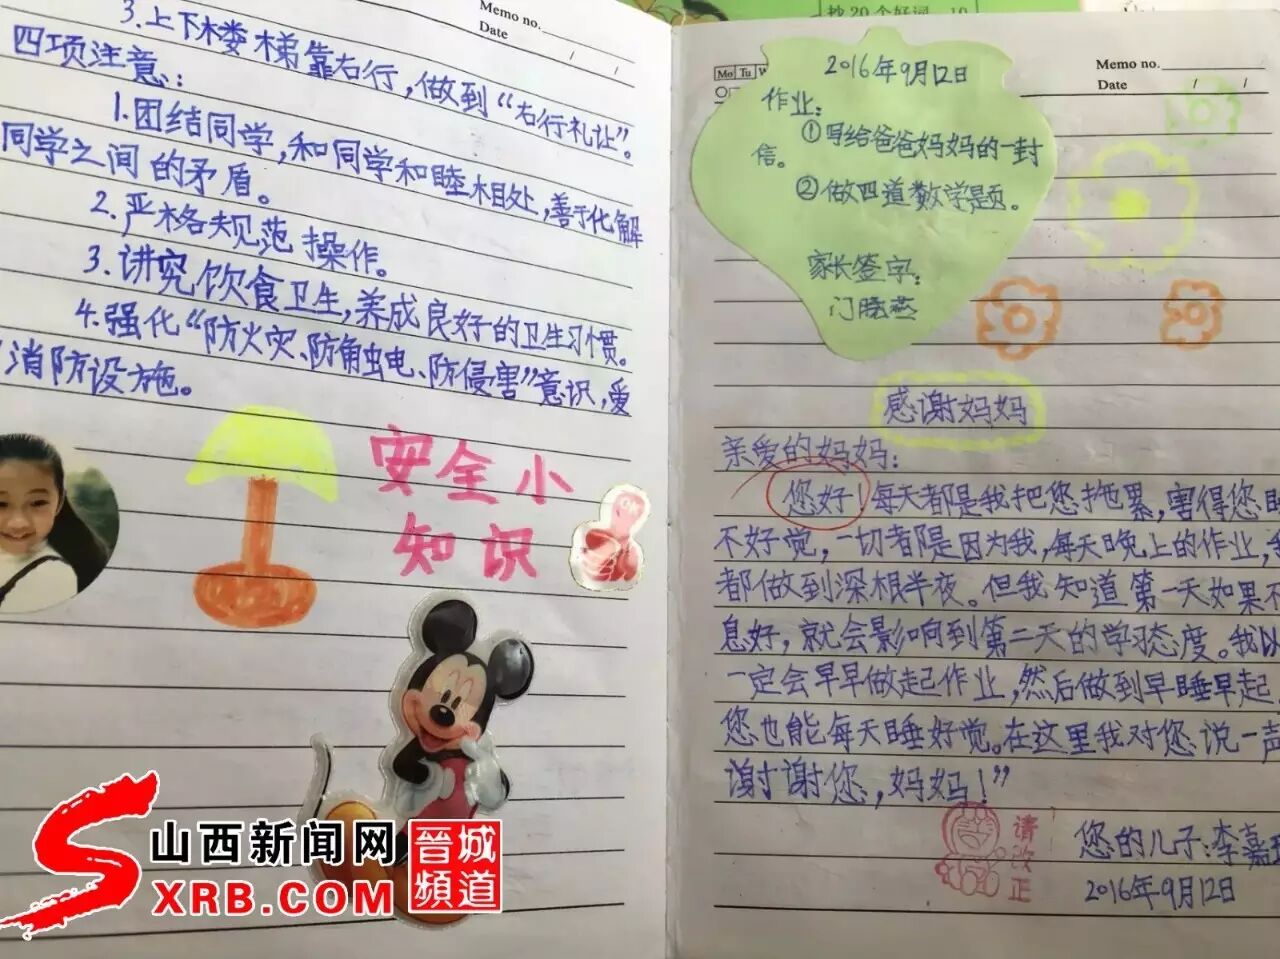 Memo no.
Date / /
3.上下楼梯靠右行，做到“右行礼让”。
四项注意：
1.团结同学，和同学和睦相处，善于化解
同学之间的矛盾。
2.严格规范操作。
3.讲究饮食卫生，养成良好的卫生习惯。
4.强化“防火灾、防触电、防侵害”意识，爱
消防设施。
安全小
知识
抄20个好词
Mo Tu
Memo no.
Date / /
2016年9月12日
作业：
①写给爸爸妈妈的一封
信。
②做四道数学题。
家长签字：
门晓燕
感谢妈妈
亲爱的妈妈：
您好！每天都是我把您拖累，害得您
不好觉，一切都是因为我，每天晚上的作业，
都做到深根半夜。但我知道第一天如果不
息好，就会影响到第二天的学习态度。我以
一定会早早做起作业，然后做到早睡早起，
您也能每天睡好觉。在这里我对您说一声
谢谢您，妈妈！”
请改正
您的儿子：李嘉
2016年9月12日
山西新闻网
SXRB.COM
晋城
频道